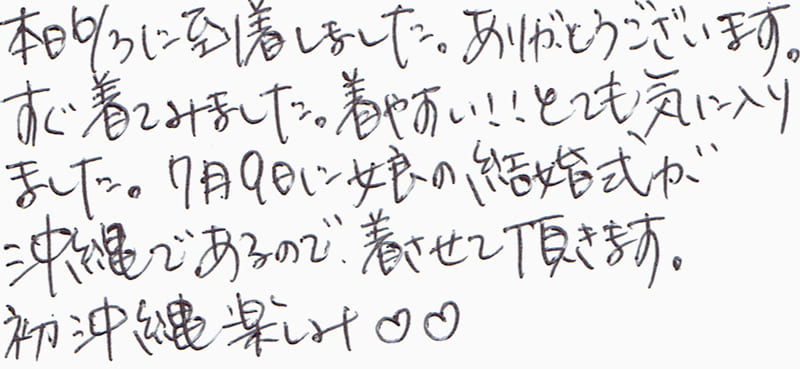 本日6/3に到着しました。ありがとうございます。
すぐ着てみました。着やすい!!とても気に入り
ました。7月9日に娘の結婚式が
沖縄であるので、着させて頂きます。
初沖縄楽しみ♡♡